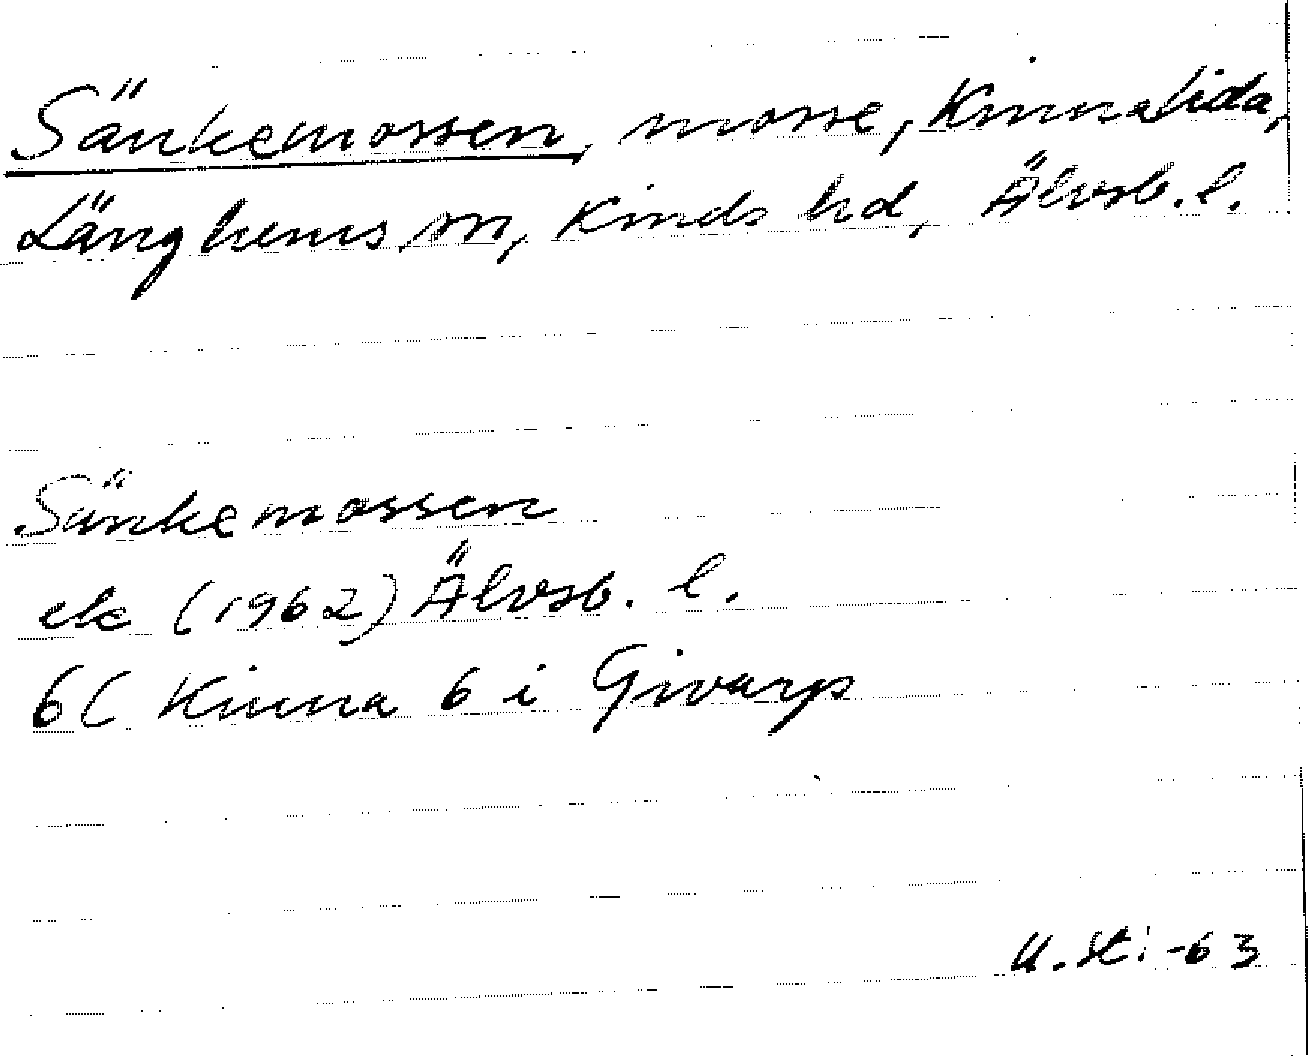 Sänkemossen, mosse, Kinnalida,
Länghems sn, Kinds hd, Älvsb. l.
Sänkemossen
ek (1962) Älvsb. l.
6C Kinna 6 i Givarp
U. St: -63